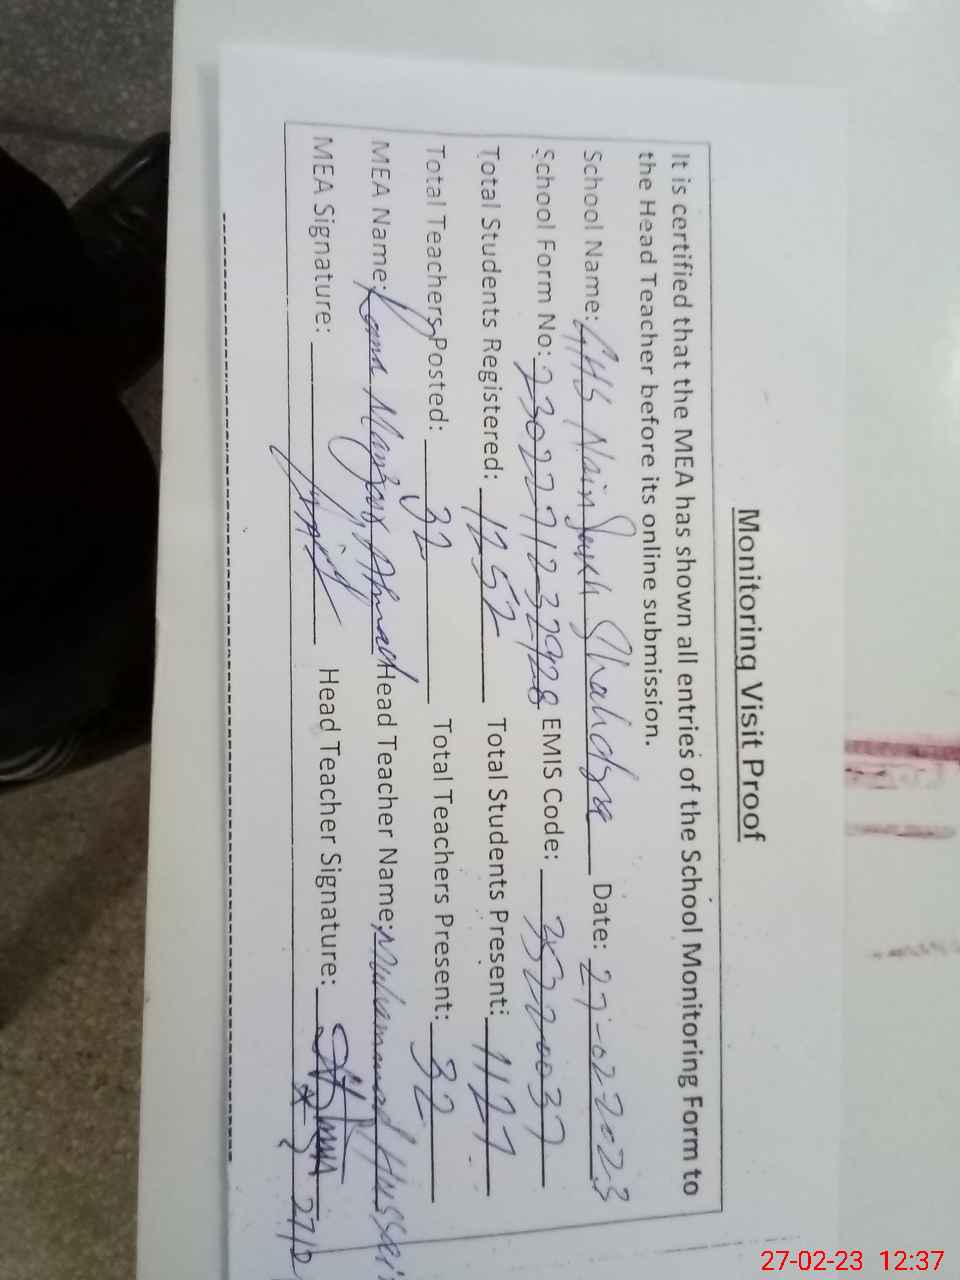 Monitoring Visit Proof
It is certified that the MEA has shown all entries of the School Monitoring Form to
the Head Teacher before its online submission.
School Name: GHS Nain Shahdra Date: 27-02-2023
School Form No: EMIS Code: 35220037
Total Students Registered: 1252 Total Students Present: 1127
Total Teachers Posted: 32 Total Teachers Present: 32
MEA Name: Rana Ahmad Head Teacher Name: Muhammad Hussain
MEA Signature: Head Teacher Signature:
27-02-23 12:37